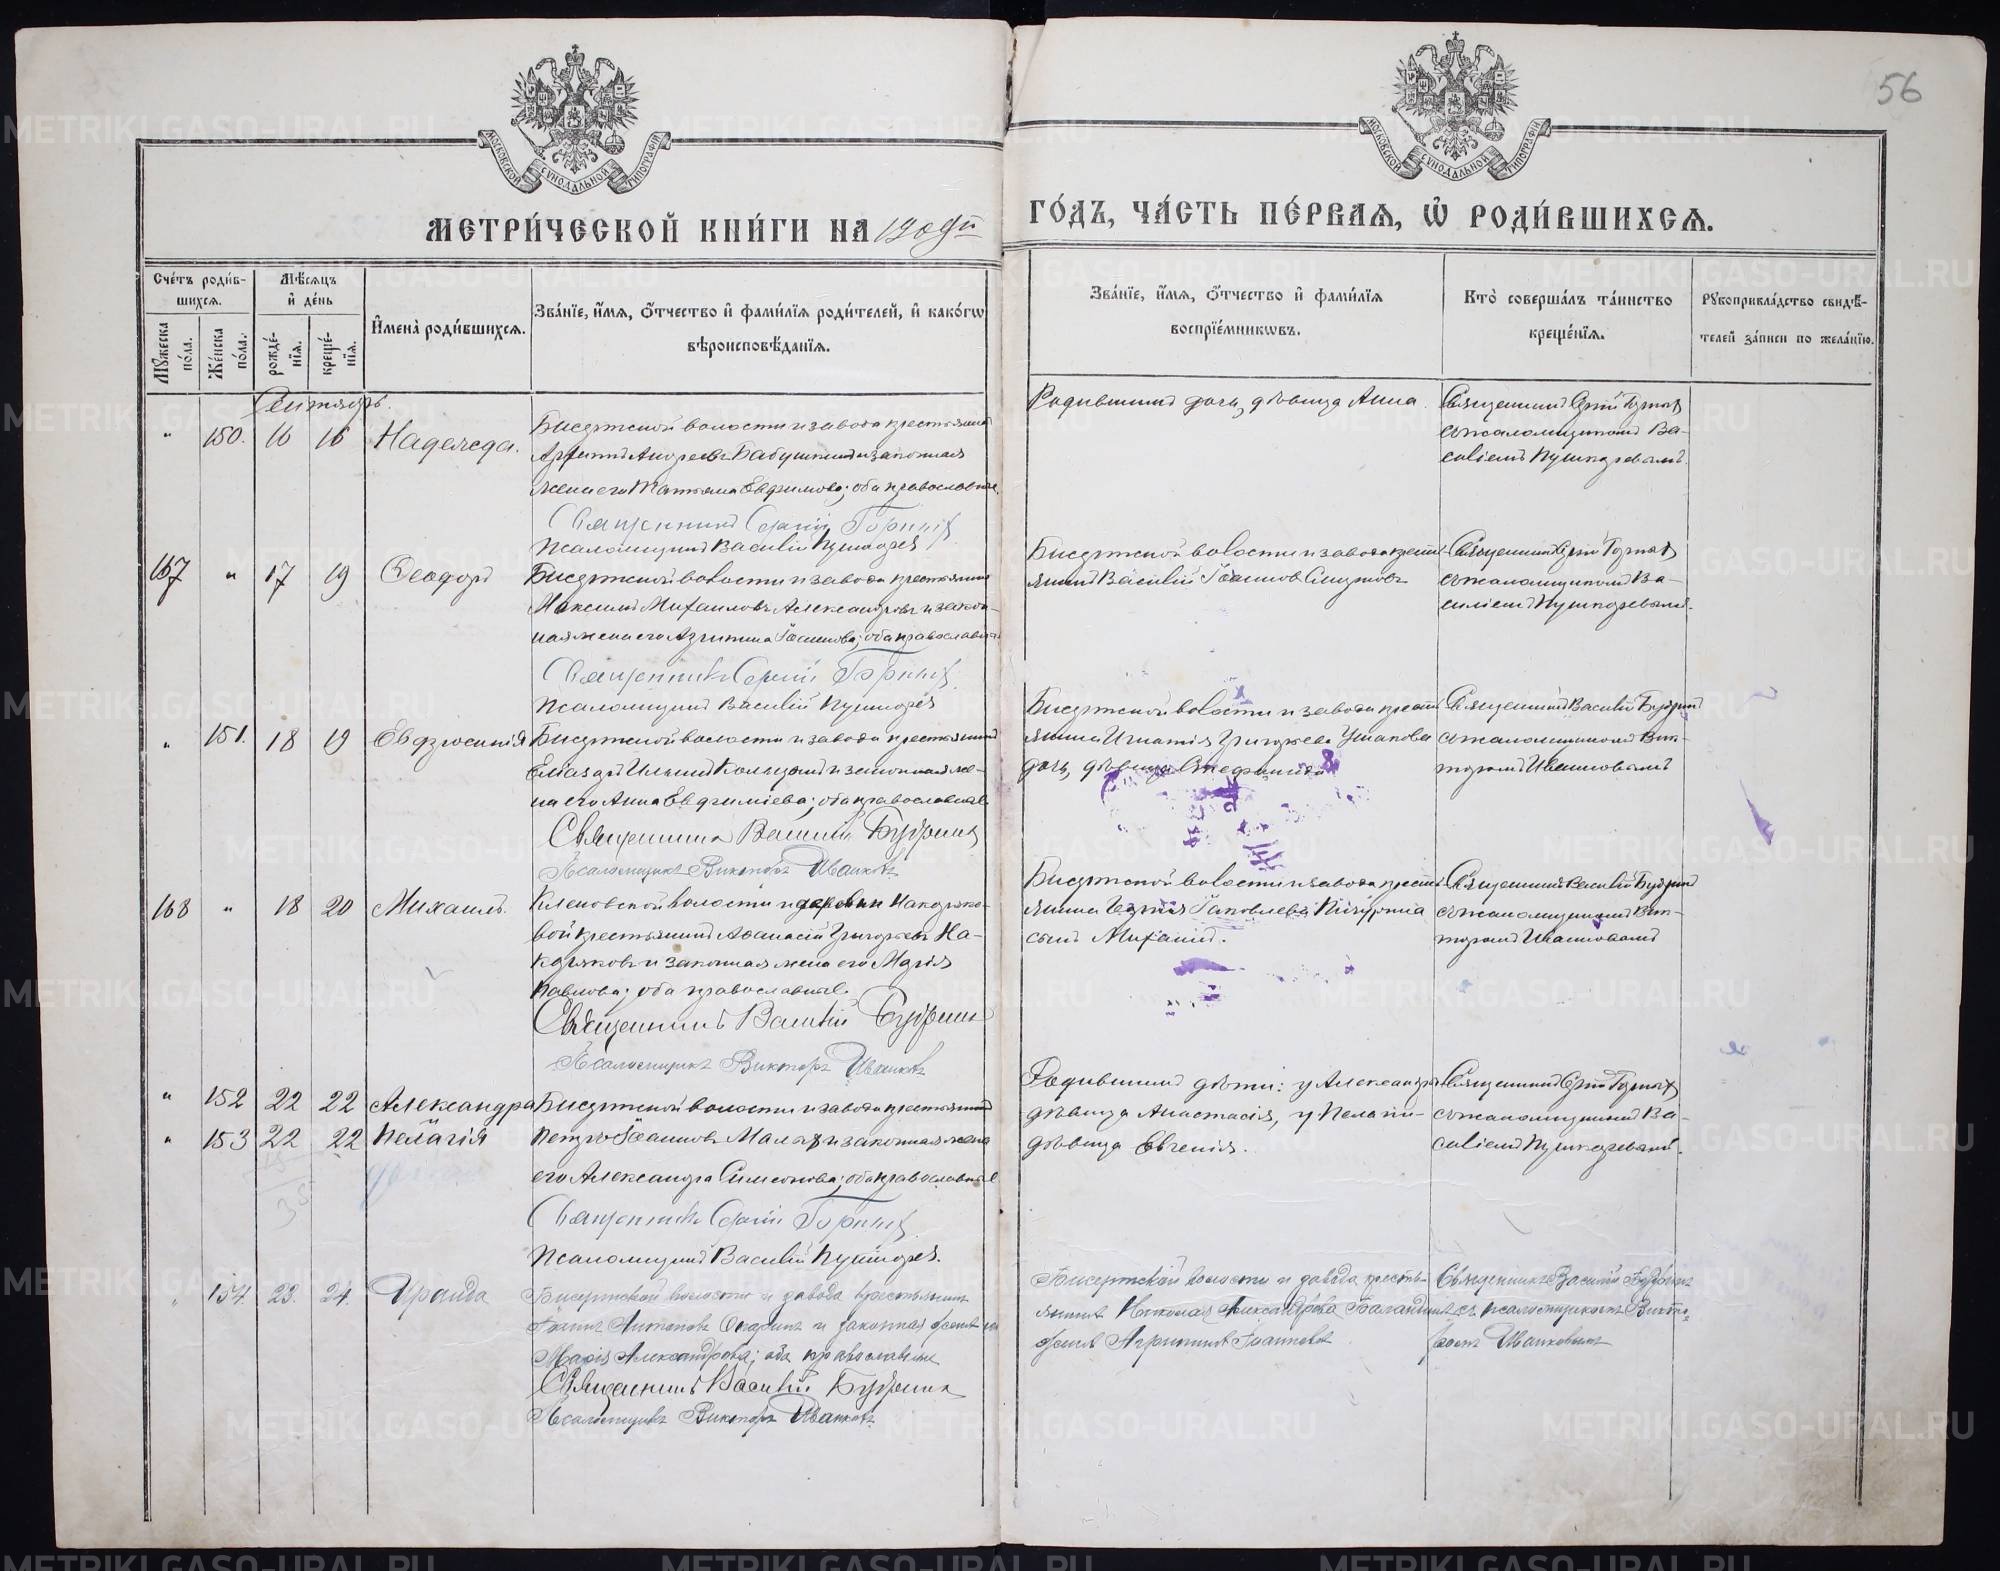 56
МОСКОВСКОЙ СУНОДАЛЬНОЙ ТИПОГРАФІИ
МОСКОВСКОЙ СУНОДАЛЬНОЙ ТИПОГРАФІИ
МЕТРИ́ЧЕСКОЙ КНИ́ГИ НА
ГО́ДЪ, ЧА́СТЬ ПЕ́РВАѦ, Ѽ РОДИ́ВШИХСѦ.
Сче́тъ роди́в-
шихсѧ.
Мѣ́сѧцъ
и҆ де́нь
И҆мена̀ роди́вшихсѧ.
Зва́нїе, и҆́мѧ, ѻ҆́тчество и҆ фами́лїѧ роди́телей, и҆ како́гѡ
вѣроисповѣ́данїѧ.
Зва́нїе, и҆́мѧ, ѻ҆́тчество и҆ фами́лїѧ
воспрїе́мникѡвъ.
Кто̀ соверша́лъ та́инство
креще́нїѧ.
Рꙋкоприкла́дство свидѣ́-
телей за́писи по жела́нїю.
Мꙋжеска
по́ла.
Же́нска
по́ла.
рожде́-
нїѧ.
креще́-
нїѧ.
Сентябрь.
" 150. 16 16 Надежда.
Бисертской волости и завода крестьянинъ
Андреевъ Бабушкинъ и законная
жена его Татьяна Евфимова; оба православные.
Священникъ Сергій
Псаломщикъ Василій Пушкаревъ
Родившихъ дочь, дѣвица Анна.
Священникъ Сергій
съ псаломщикомъ Ва-
силіемъ Пушкаревымъ.
167 " 17 19 Ѳеодоръ
Бисертской волости и завода крестьянинъ
Максимъ Михаиловъ Александровъ и закон-
ная жена его Агрипина Іоаннова; оба православные
Священникъ Сергій
Псаломщикъ Василій Пушкаревъ
Бисертской волости и завода кресть-
янинъ Василій Іоанновъ
Священникъ Сергій
съ псаломщикомъ Ва-
силіемъ Пушкаревымъ.
" 151. 18 19 Евфросинія
Бисертской волости и завода крестьянинъ
Еліазаръ Ильинъ и законная же-
на его Анна Евфиміева; оба православные.
Священникъ Василій Будринъ
Псаломщикъ Викторъ Иванковъ
Бисертской волости и завода кресть-
янина Игнатія Григорьева Ушакова
дочь, дѣвица Стефанида
Священникъ Василій Будринъ
съ псаломщикомъ Вик-
торомъ Иванковымъ
168 " 18 20 Михаилъ.
Кленовской волости и деревни Накоряко-
вой крестьянинъ Аѳанасій Григорьевъ На-
коряковъ и законная жена его Марія
Павлова; оба православные.
Священникъ Василій Будринъ
Псаломщикъ Викторъ Иванковъ
Бисертской волости и завода кресть-
янина Іаковлева
сынъ Михаилъ.
Священникъ Василій Будринъ
съ псаломщикомъ Вик-
торомъ Иванковымъ
" 152 22 22 Александра
" 153 22 22 Пелагія
Бисертской волости и завода крестьянинъ
Петръ Іоанновъ Малыхъ и законная жена
его Александра Симеонова; оба православные
Священникъ Сергій
Псаломщикъ Василій Пушкаревъ.
Родившихъ дѣти: у Александры
дѣвица Анастасія, у Пелагіи-
дѣвица Евгенія.
Священникъ Сергій
съ псаломщикомъ Ва-
силіемъ Пушкаревымъ.
38
" 154. 23. 24. Ираида
Бисертской волости и завода крестьянинъ
Іоаннъ Антоновъ Опаринъ и законная жена его
Марія Александрова; оба православные
Священникъ Василій Будринъ
Псаломщикъ Викторъ Иванковъ
Бисертской волости и завода кресть-
янина Николая Александрова Баландина
жена Агрипина Іоаннова
Священникъ Василій Будринъ
съ псаломщикомъ Викто-
ромъ Иванковымъ
METRIKI.GASO-URAL.RU